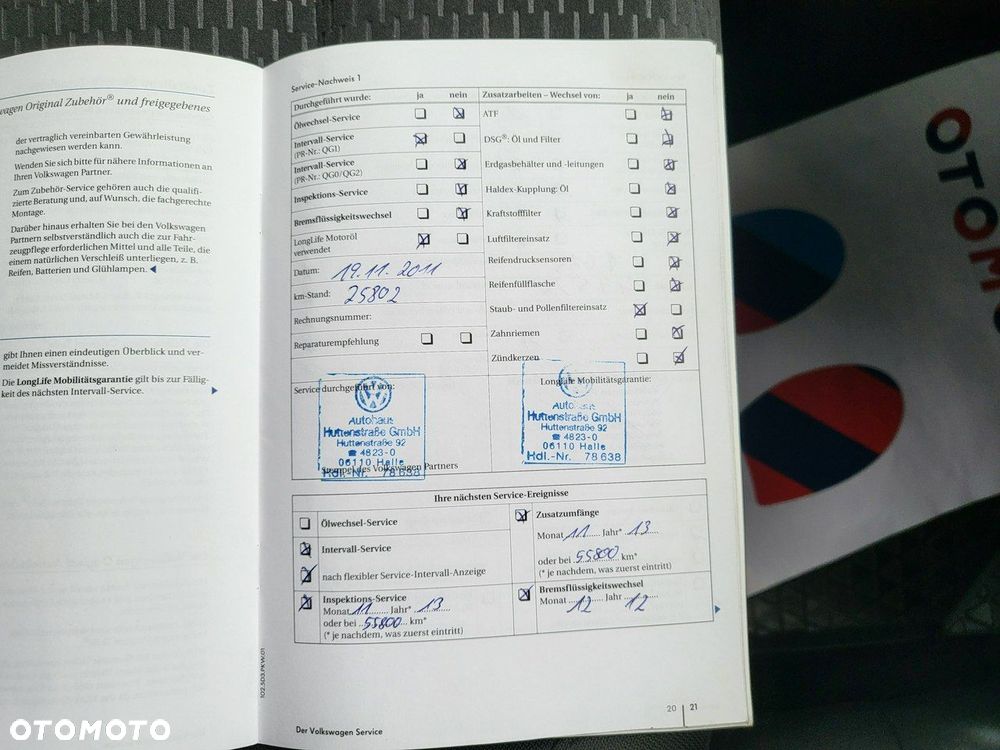 wagen Original Zubehör® und freigegebenes
der vertraglich vereinbarten Gewährleistung
nachgewiesen werden kann.
Wenden Sie sich bitte für nähere Informationen an
Ihren Volkswagen Partner.
Zum Zubehör-Service gehören auch die qualifi-
zierte Beratung und, auf Wunsch, die fachgerechte
Montage.
Darüber hinaus erhalten Sie bei den Volkswagen
Partnern selbstverständlich auch die zur Fahr-
zeugpflege erforderlichen Mittel und alle Teile, die
einem natürlichen Verschleiß unterliegen, z. B.
Reifen, Batterien und Glühlampen.
gibt Ihnen einen eindeutigen Überblick und ver-
meidet Missverständnisse.
Die LongLife Mobilitätsgarantie gilt bis zur Fällig-
keit des nächsten Intervall-Service.
Service-Nachweis 1
Durchgeführt wurde: ja nein
Ölwechsel-Service
Intervall-Service
(PR-Nr.: QG1)
Intervall-Service
(PR-Nr.: QG0/QG2)
Inspektions-Service
Bremsflüssigkeitswechsel
LongLife Motoröl
verwendet
Datum: 19.11.2011
km-Stand: 25802
Rechnungsnummer:
Reparaturempfehlung
Zusatzarbeiten – Wechsel von: ja nein
ATF
DSG®: Öl und Filter
Erdgasbehälter und -leitungen
Haldex-Kupplung: Öl
Kraftstofffilter
Luftfiltereinsatz
Reifendrucksensoren
Reifenfüllflasche
Staub- und Pollenfiltereinsatz
Zahnriemen
Zündkerzen
Service durchgeführt von:
Autohaus
Huttenstraße GmbH
Huttenstraße 92
☎ 4823-0
06110 Halle
Hdl.-Nr. 78 638
Stempel des Volkswagen Partners
LongLife Mobilitätsgarantie:
Autohaus
Huttenstraße GmbH
Huttenstraße 92
☎ 4823-0
06110 Halle
Hdl.-Nr. 78 638
Ihre nächsten Service-Ereignisse
Ölwechsel-Service
Intervall-Service
nach flexibler Service-Intervall-Anzeige
Inspektions-Service
Monat 11 Jahr* 13
oder bei 55800 km*
(* je nachdem, was zuerst eintritt)
Zusatzumfänge
Monat 11 Jahr* 13
oder bei 55800 km*
(* je nachdem, was zuerst eintritt)
Bremsflüssigkeitswechsel
Monat 12 Jahr 12
102.5D3.PKW.01
Der Volkswagen Service
20 21
OTOM
OTOMOTO